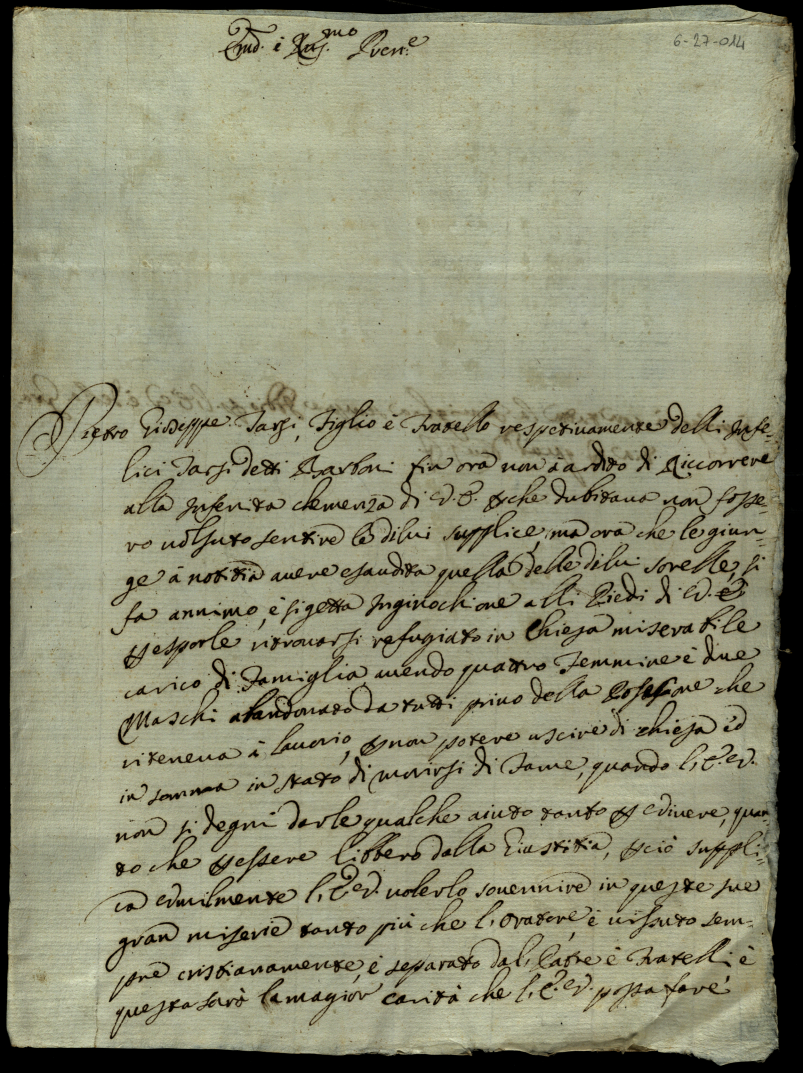 Em.o è Reu.mo Pren.e
6-27-014
Pietro Giuseppe Tarsi, Figlio è Fratello respetiuamente delli Infe-
lici Tarsi detti Barboni fin ora non a ardito di Riccorrere
alla Infenita clemenza di V. E. che dubitaua non fosse-
ro uolsuto sentire le dilui supplice, ma ora che le giun-
ge à notitia auere esaudita quella delle dilui sorelle, si
fa annimo, è si getta Inginochione alli Piedi di V. E.
esporle ritrouarsi refugiato in Chiesa miserabile
carico di Famiglia auendo quattro Femmine è due
Maschi abandonato da tutti priuo della che
riteneua à lauorio, non potere uscire di chiesa ed
in somma in stato di morirsi di Fame, quando l'E. V.
non si degni darle qualche aiuto tanto viuere, quan-
to che essere libbero dalla Giustitia, ciò suppli-
ca vmilmente l'E. V. uolerlo souennire in queste sue
gran miserie tanto più che l'oratore è uissuto sem-
pre cristianamente, è separato dal Patre è Fratelli è
questa sarà la magior carità che l'E. V. possa fare